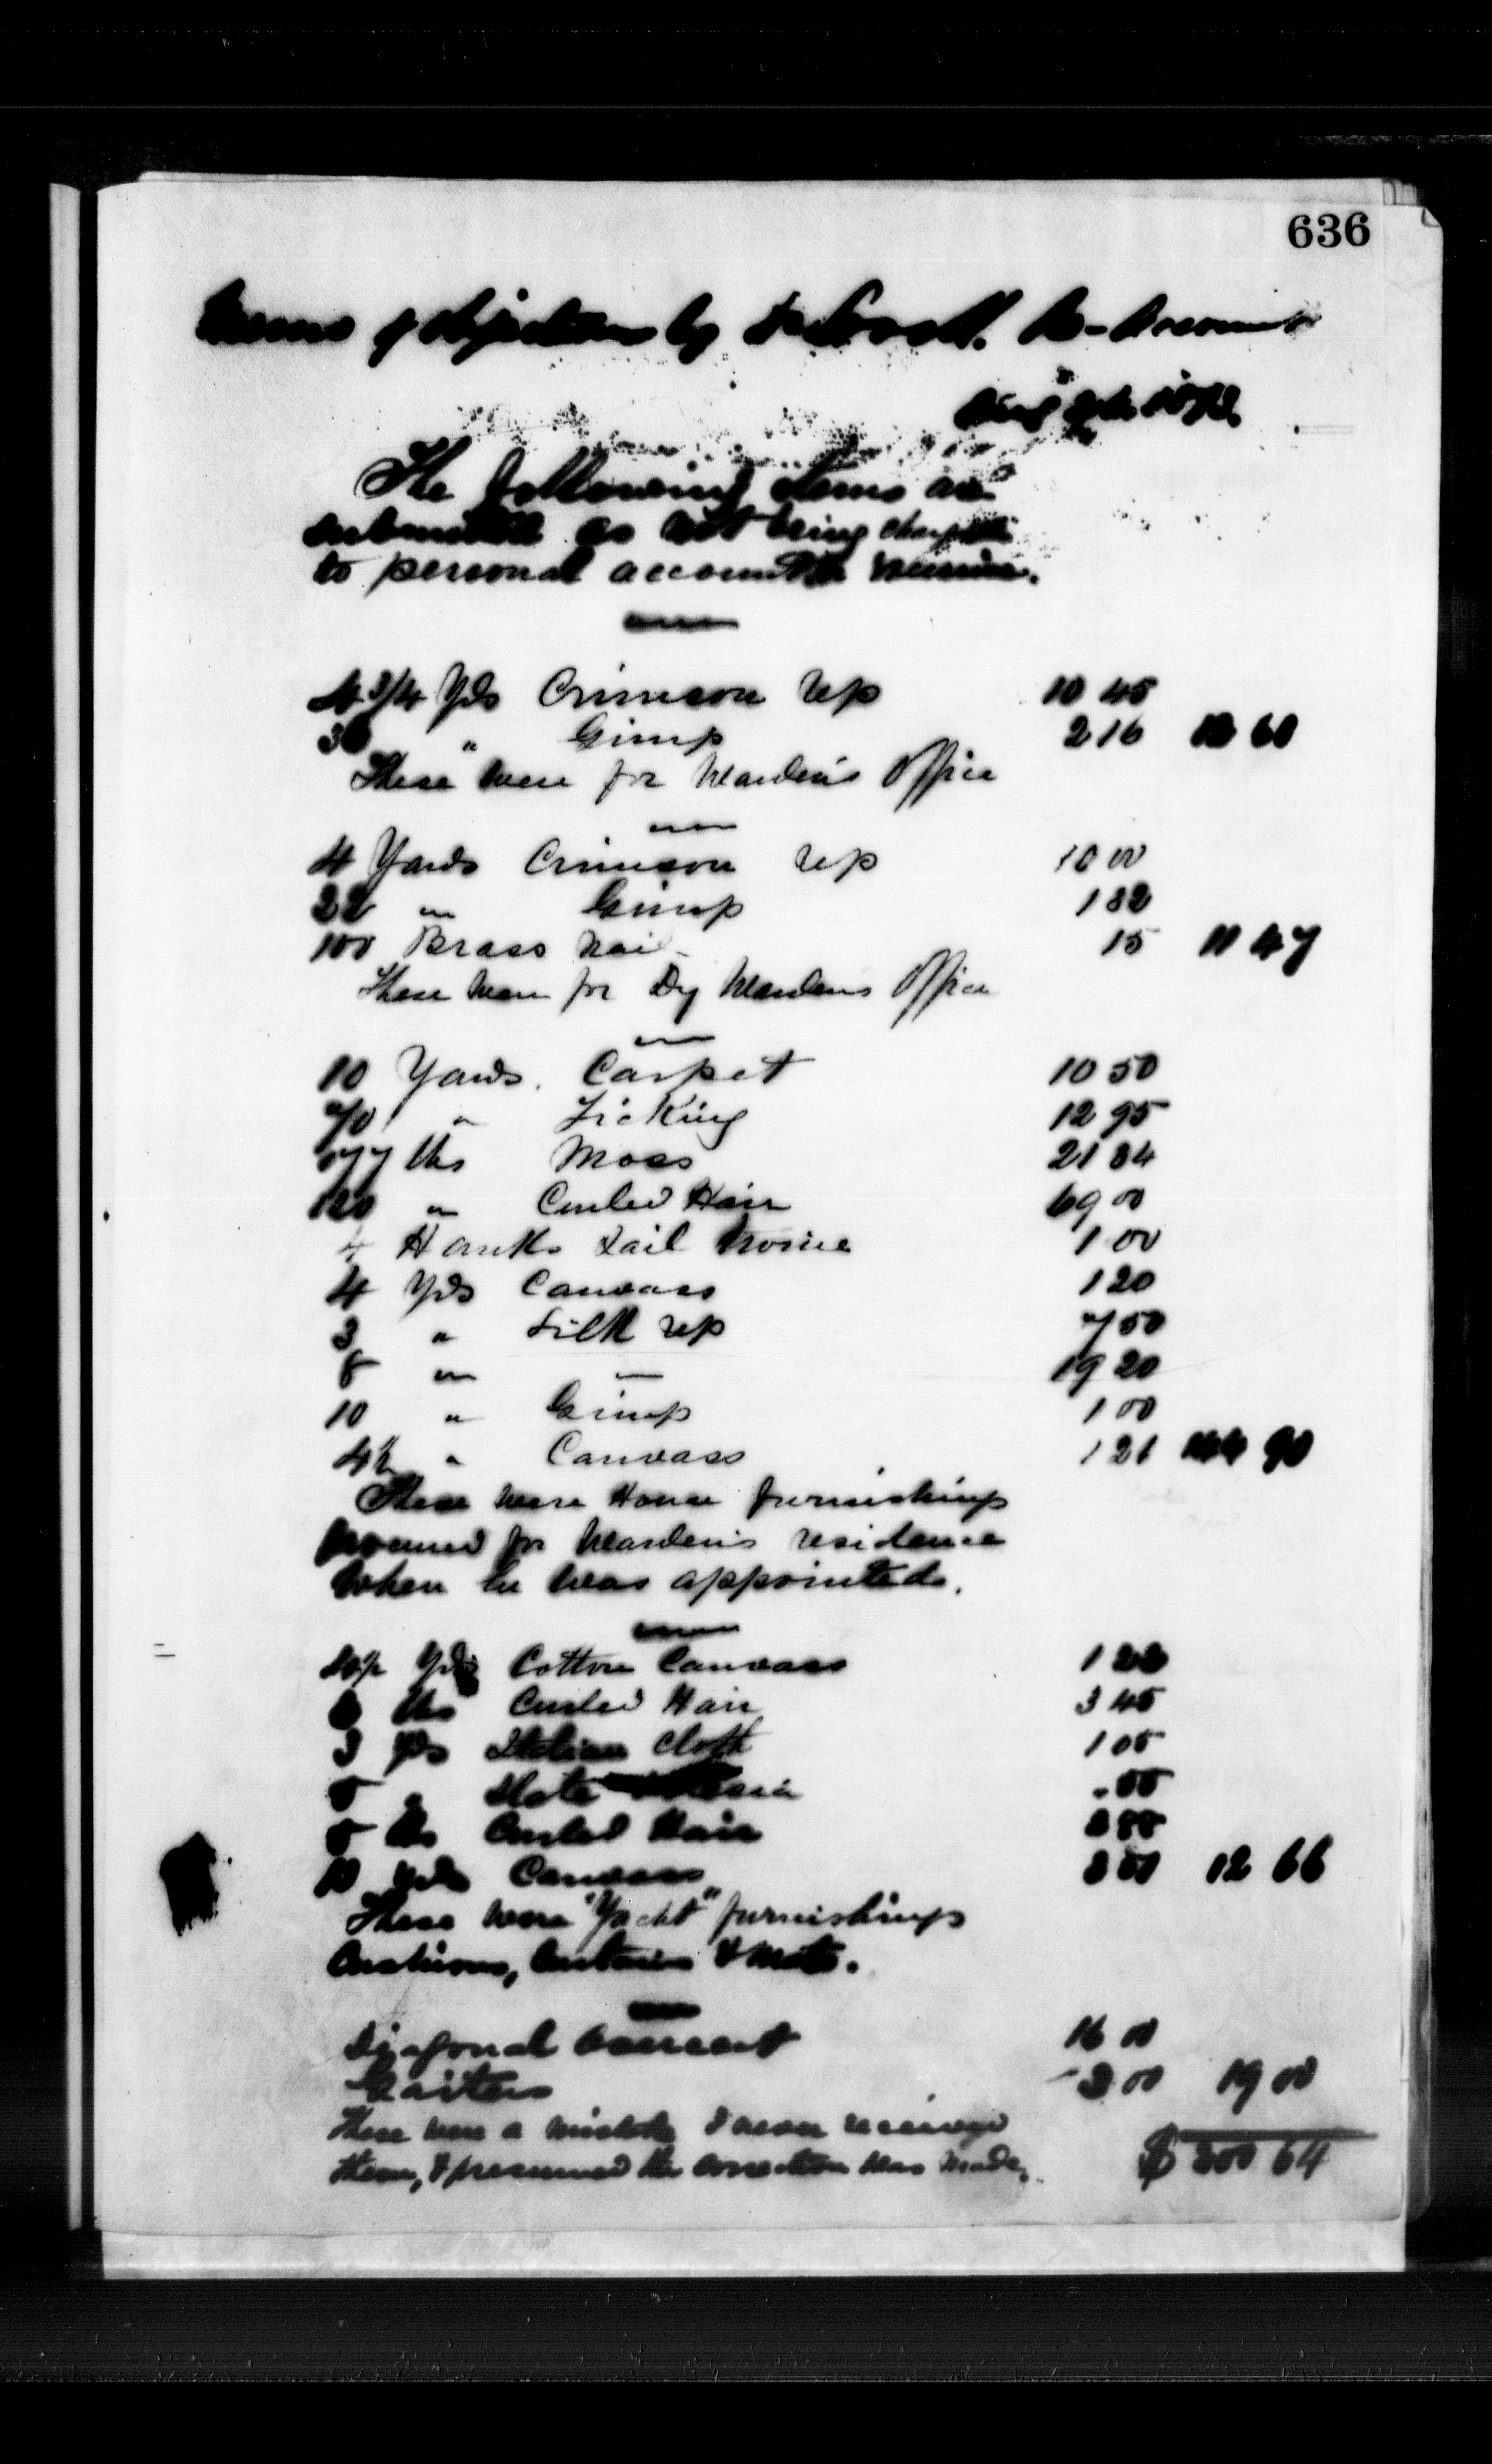 636
Memo of objections by
The following items are
submitted as not being
to personal account
4 3/4 Yds Crimson rep 10 45
36 " Gimp 2 16 12 61
These were for Warden's Office
4 Yards Crimson rep 10 00
22 " Gimp 1 32
100 Brass nai 15 11 47
These were for Dy Wardens Office
10 Yards. Carpet 10 50
70 " Ticking 12 95
lbs Moss 21 84
120 " Curled Hair 69 00
4 Hanks 1 00
4 Yds Canvass 1 20
3 " Silk rep 7 50
8 " " 19 20
10 " Gimp 1 00
4½ " Canvass 1 21 144 90
These were House furnishings
procured for Warden's residence
when he was appointed.
Yds Cotton Canvass 1 22
6 lbs Curled Hair 3 45
3 Yds Italian Cloth 1 05
5 " Slate
5 lbs Curled Hair 2 88
10 Yds Canvass 12 66
These were "Yacht" furnishings
Cushions, Curtains & Mats.
Diagonal Overcoat 16 00
Gaiters 3 00 19 00
These were a mistake I never received
them, I presumed the correction was made. $ 200 64